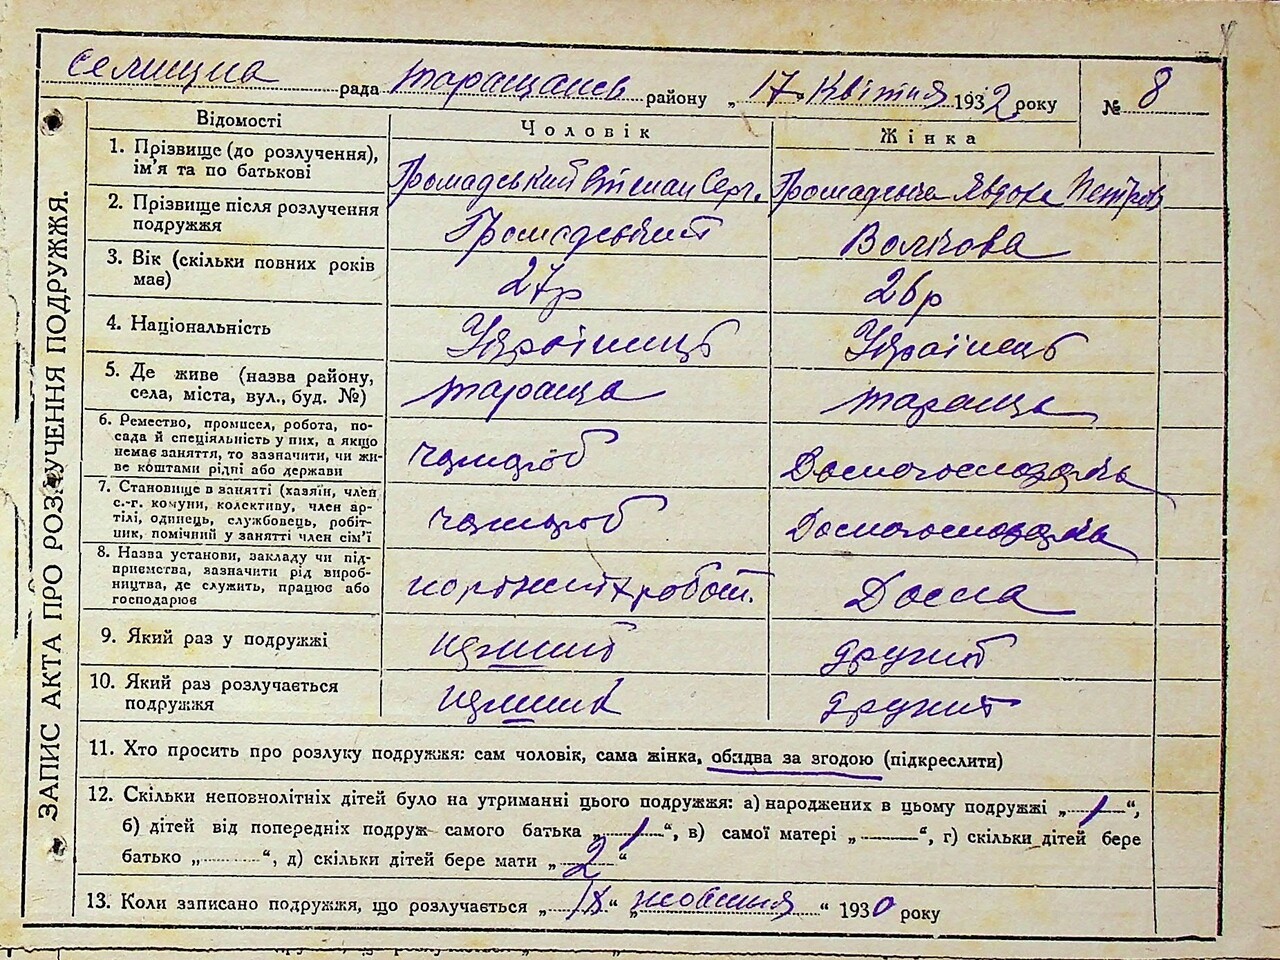 Селищна рада Таращанськ району „17“ Квітня 1932 року № 8
ЗАПИС АКТА ПРО РОЗЛУЧЕННЯ ПОДРУЖЖЯ.
Відомості Чоловік Жінка
1. Прізвище (до розлучення), ім'я та по батькові Громадський Степан Серг. Громадська Явдоха Петров
2. Прізвище після розлучення подружжя Громадський Волкова
3. Вік (скільки повних років має) 27р 26р
4. Національність Українець Українець
5. Де живе (назва району, села, міста, вул., буд. №) Тараща Тараща
6. Ремество, промисел, робота, посада й спеціяльність у них, а якщо немає заняття, то зазначити, чи живе коштами рідні або держави чорнороб Домогосподарка
7. Становище в занятті (хазяїн, член с.-г. комуни, колективу, член артілі, одинець, службовець, робітник, помічний у занятті член сім'ї чорнороб Домогосподарка
8. Назва установи, закладу чи підприємства, зазначити рід виробництва, де служить, працює або господарює робот. Дома
9. Який раз у подружжі другий
10. Який раз розлучається подружжя другий
11. Хто просить про розлуку подружжя: сам чоловік, сама жінка, обидва за згодою (підкреслити)
12. Скільки неповнолітніх дітей було на утриманні цього подружжя: а) народжених в цьому подружжі „1“,
б) дітей від попередніх подруж самого батька „1“, в) самої матері „—“, г) скільки дітей бере
батько „ “, д) скільки дітей бере мати „2“
13. Коли записано подружжя, що розлучається „18“ „жовтня“ 1930 року